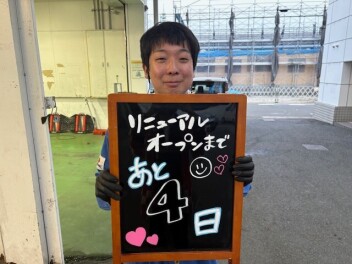 リニューアル
オープンまで
あと
4
日